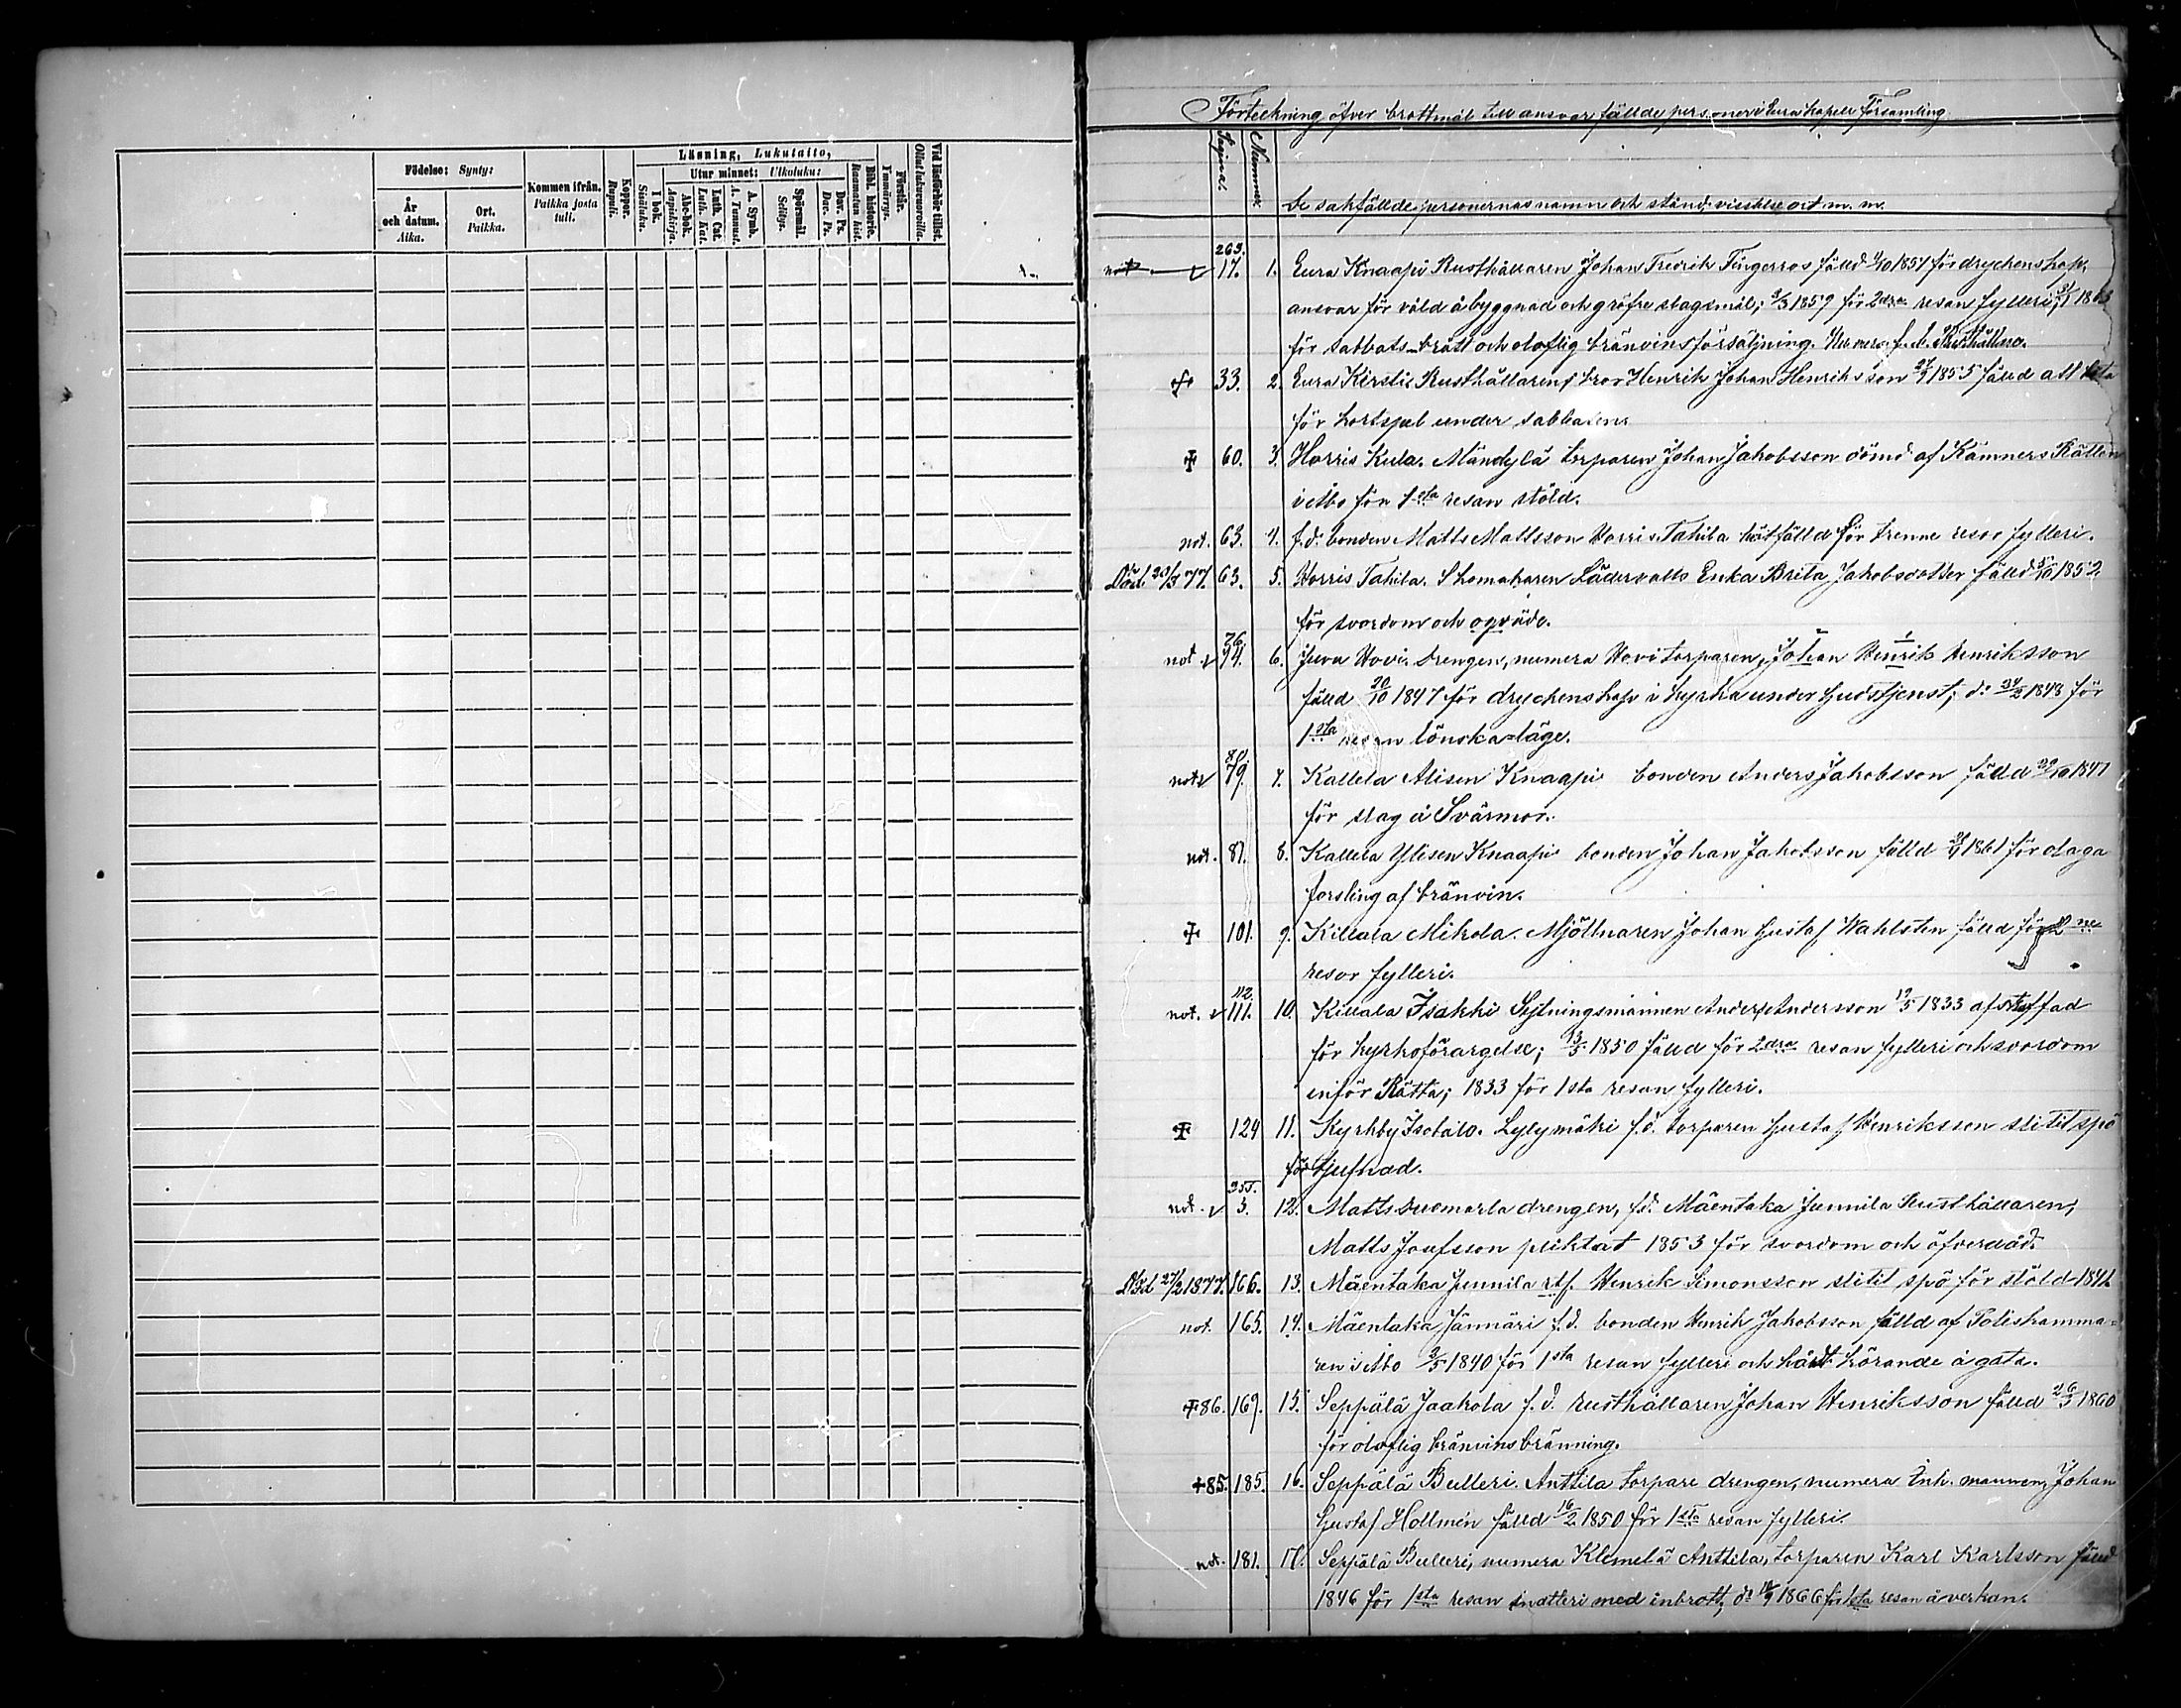 Läsning, Lukutaito,
Födelse: Synty:
Utur minnet: Ulkoluku:
Kommen ifrån.
Paikka josta
tuli.
År
och datum.
Aika.
Ort.
Paikka.
Koppor.
Rupuli.
I bok.
Sisäluku.
Abc-bok.
Aapiskirja.
Luth. Cat.
Luth. Kat.
A. Symb.
A. Tunnust.
Spörsmål.
Selitys.
Dav. Ps.
Dav. Ps.
Bibl. historie.
Raamatun hist.
Förstår.
Ymmärrys.
Vid läsförhör tillst.
Ollut lukuvuoroilla.
Förteckning öfver brottmål till ansvar fällde personer i Eura kapell Församling
Pagina. Nummer.
De sakfällde personernas namn och stånd, vistelse ort m. m.
263.
not 17. 1. Eura Knaapi Rusthållaren Johan Fredrik Fingerroos fälld 1/10 1851 för dryckenskap,
ansvar för våld å byggnad och gröfre slagsmål; 3/3 1857 för 2dra resan fylleri;
för sabbats-brott och oloflig bränvinsförsäljning. Numera f. d. Rusthållare.
33. 2. Eura Kirstis Rusthållarens bror Henrik Johan Henriksson 27/9 1855 fälld att böta
för kortspel under sabbaten.
60. 3. Horris Kula. Mändylä torparen Johan Jakobsson dömd af Kämners Rätten
i Åbo för 1sta resan stöld.
not. 63. 4. f. d. bonden Matts Mattsson Horris Tahila sakfälld för trenne resor fylleri.
Död 30/5 77. 63. 5. Horris Tahila. Skomakaren Lädervalls Enka Brita Jakobsdotter fälld 5/10 1852
för svordom och oqväde.
76.
not 74. 6. Juva Hovi Drengen, numera Hovi torparen, Johan Henrik Henriksson
fälld 20/10 1847 för dryckenskap i kyrka under Gudstjenst; d: 24/2 1848 för
1sta resan lönskaläge.
81.
not 79. 7. Kallela Alisen Knaapi bonden Anders Jakobsson fälld 20/10 1847
för slag å Svärmor.
not. 81. 8. Kallela Ylisen Knaapi bonden Johan Jakobsson fälld 21/9 1861 för olaga
forsling af bränvin.
101. 9. Killala Mikola. Mjöllnaren Johan Gustaf Wahlsten fälld för 2ne
resor fylleri.
112.
not. 111. 10. Killala Isakki Sytningsmannen Anders Andersson 17/5 1833 afstraffad
för kyrkoförargelse; 13/5 1850 fälld för 2dra resan fylleri och svordom
inför Rätta; 1833 för 1sta resan fylleri.
124 11. Kyrkby Isotalo. Lylymäki f. d. torparen Gustaf Henriksson slitit spö
för tjufnad.
355.
not. 3. 12. Matts Suomarla drengen, f.d. Mäentaka Junnila Rusthållaren,
Matts Josefsson pliktat 1853 för svordom och öfverdåd.
Död 27/2 1877. 166. 13. Mäentaka Junnila rtf. Henrik Simonsson slitit spö för stöld 1841
not. 165. 14. Mäentaka Jännäri f.d. bonden Henrik Jakobsson fälld af Poliskamma-
ren i Åbo 3/5 1840 för 1sta resan fylleri och hårdt körande å gata.
86. 169. 15. Seppälä Jaakola f. d. rusthållaren Johan Henriksson fälld 26/3 1860
för oloflig bränvinsbränning.
85. 185. 16. Seppälä Bulleri. Anttila torpare drengen, numera Inh. mannen, Johan
Gustaf Hollmén fälld 16/2 1850 för 1sta resan fylleri.
not. 181. 17. Seppälä Bulleri, numera Klemelä Anttila, torparen Karl Karlsson fälld
1846 för 1sta resan snatteri med inbrott, d: 18/9 1866 för 1sta resan åverkan.